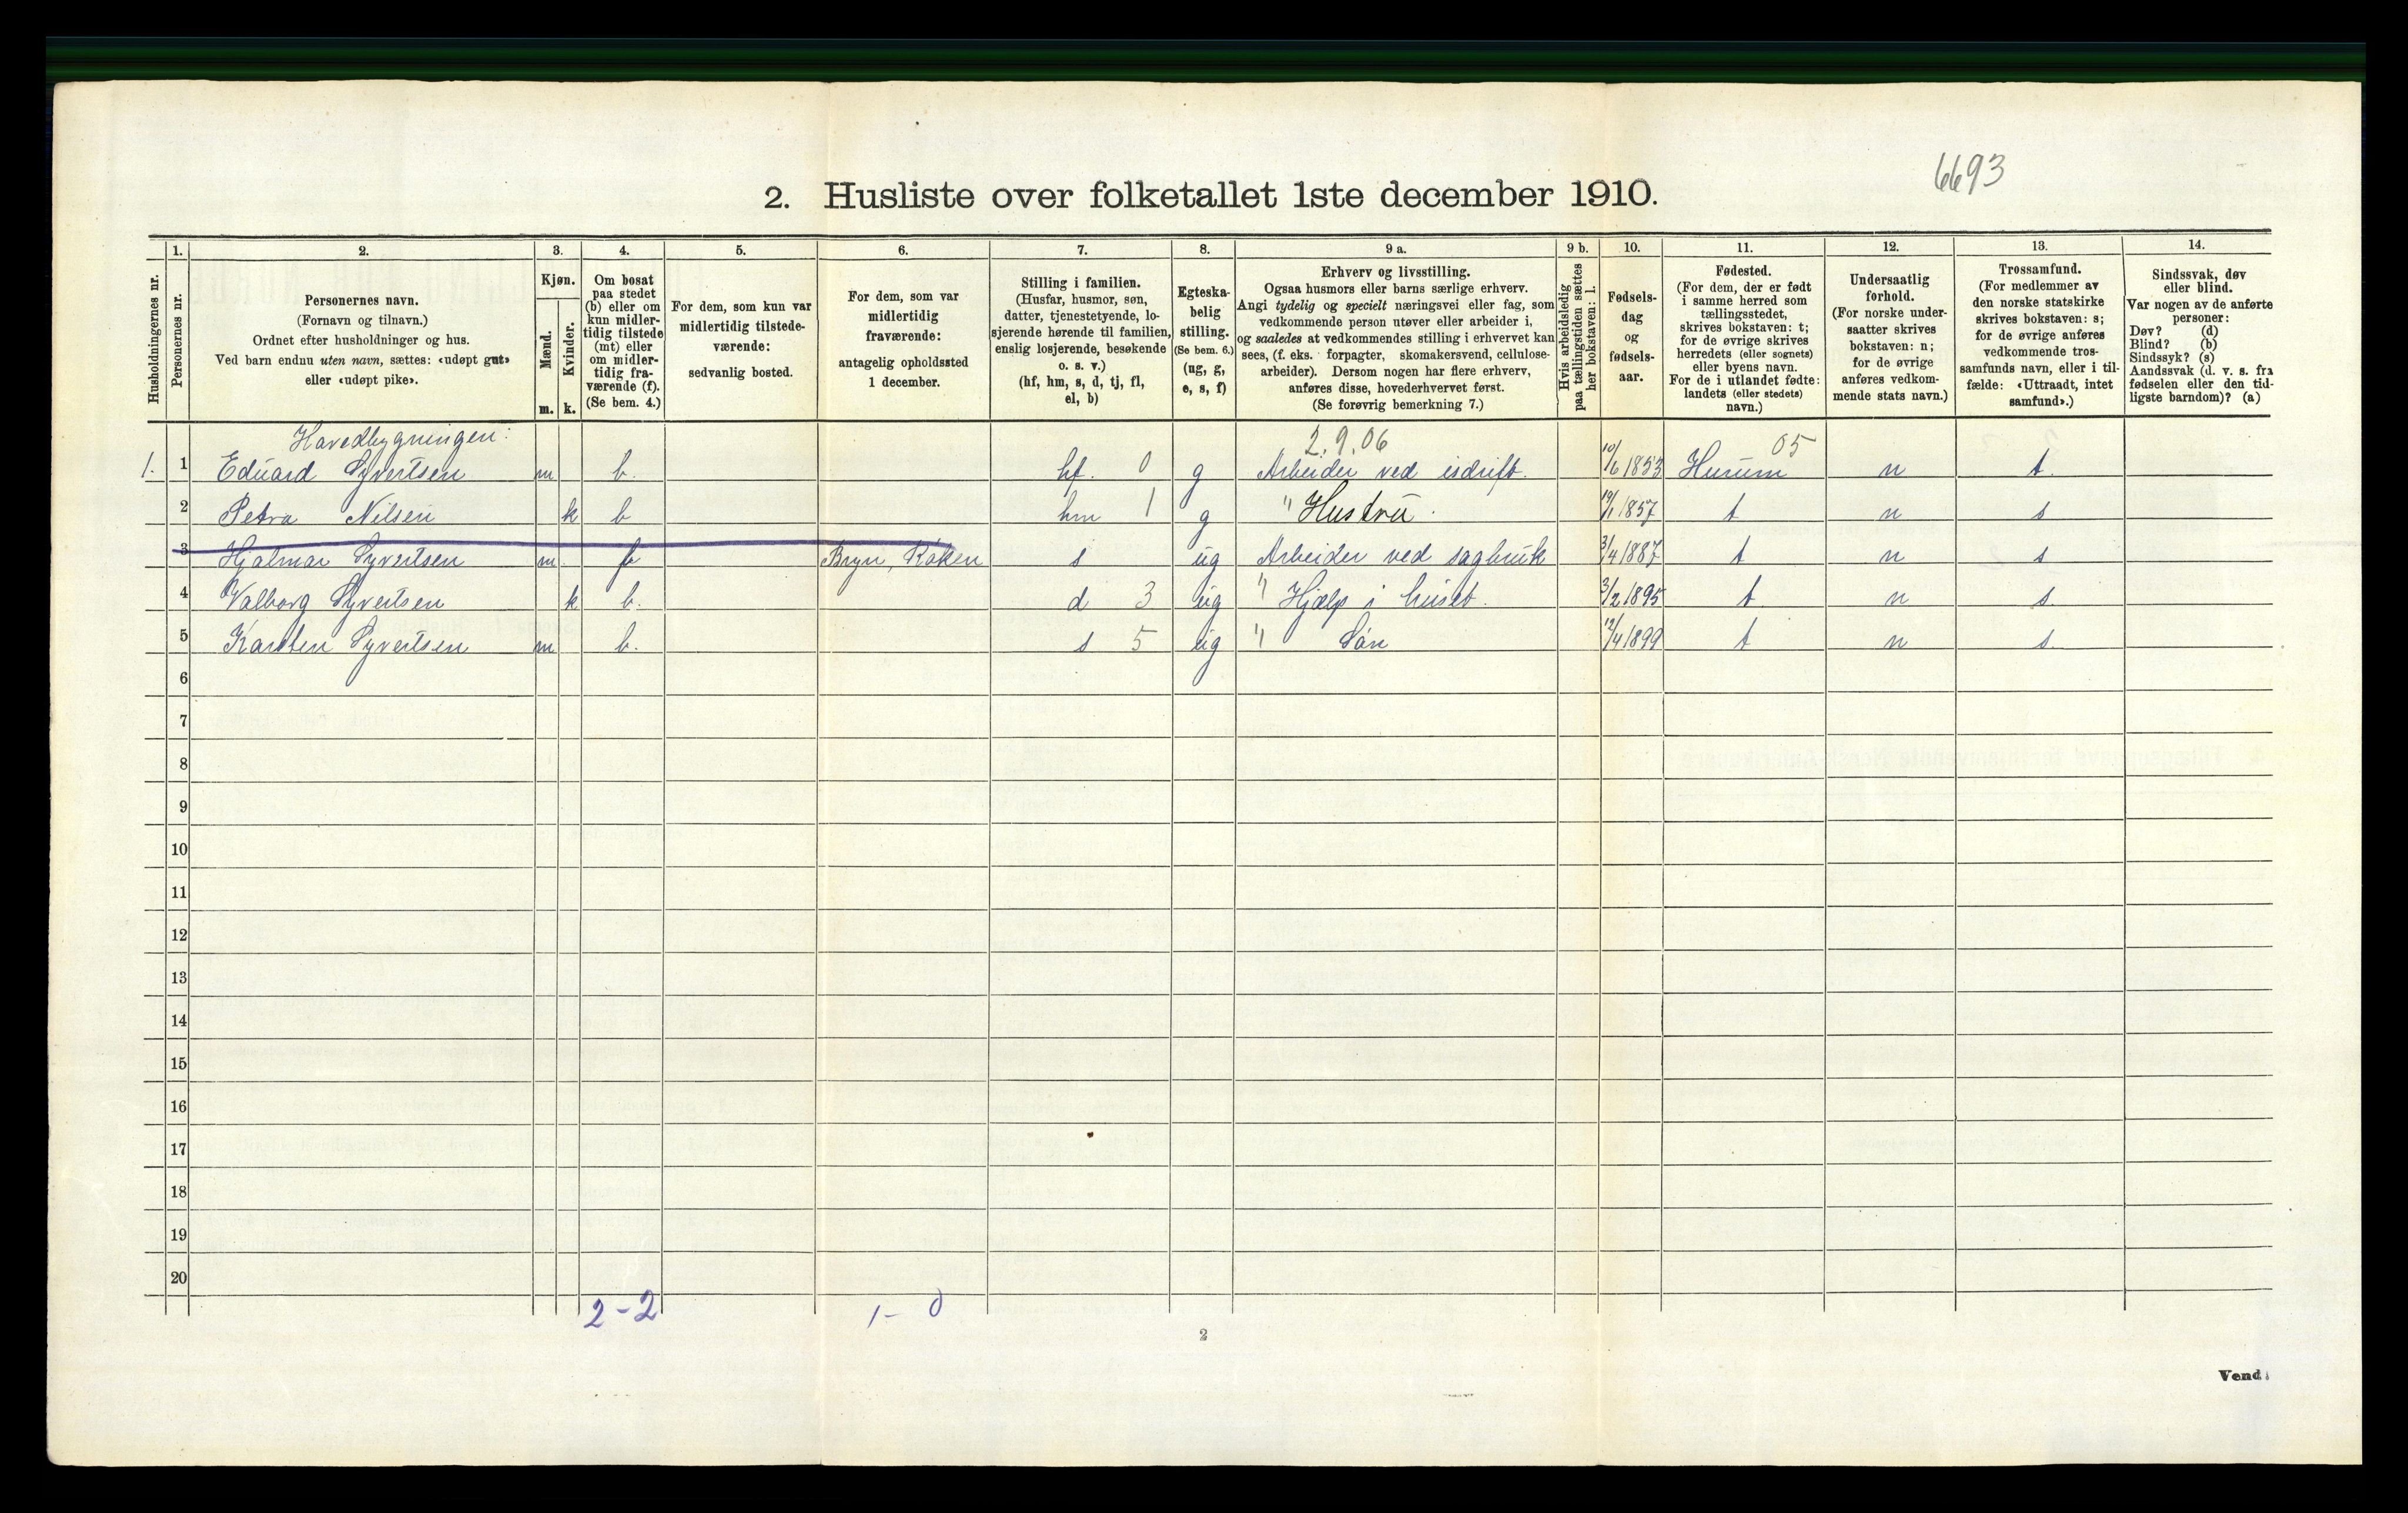 6693
2. Husliste over folketallet 1ste december 1910.
1. 2. 3. 4. 5. 6. 7. 8. 9 a. 9 b. 10. 11. 12. 13. 14.
Husholdningernes nr.
Personernes nr.
Personernes navn.
(Fornavn og tilnavn.)
Ordnet efter husholdninger og hus.
Ved barn endnu uten navn, sættes: «udøpt gut»
eller «udøpt pike».
Kjøn.
Mænd.
Kvinder.
m. k.
Om bosat
paa stedet
(b) eller om
kun midler-
tidig tilstede
(mt) eller
om midler-
tidig fra-
værende (f).
(Se bem. 4.)
For dem, som kun var
midlertidig tilstede-
værende:
sedvanlig bosted.
For dem, som var
midlertidig
fraværende:
antagelig opholdssted
1 december.
Stilling i familien.
(Husfar, husmor, søn,
datter, tjenestetyende, lo-
sjerende hørende til familien,
enslig losjerende, besøkende
o. s. v.)
(hf, hm, s, d, tj, fl,
el, b)
Egteska-
belig
stilling.
(Se bem. 6.)
(ug, g,
e, s, f)
Erhverv og livsstilling.
Ogsaa husmors eller barns særlige erhverv.
Angi tydelig og specielt næringsvei eller fag, som
vedkommende person utøver eller arbeider i,
og saaledes at vedkommendes stilling i erhvervet kan
sees, (f. eks. forpagter, skomakersvend, cellulose-
arbeider). Dersom nogen har flere erhverv,
anføres disse, hovederhvervet først.
(Se forøvrig bemerkning 7.)
Hvis arbeidsledig
paa tællingstiden sættes
her bokstaven: l.
Fødsels-
dag
og
fødsels-
aar.
Fødested.
(For dem, der er født
i samme herred som
tællingsstedet,
skrives bokstaven: t;
for de øvrige skrives
herredets (eller sognets)
eller byens navn.
For de i utlandet fødte:
landets (eller stedets)
navn.)
Undersaatlig
forhold.
(For norske under-
saatter skrives
bokstaven: n;
for de øvrige
anføres vedkom-
mende stats navn.)
Trossamfund.
(For medlemmer av
den norske statskirke
skrives bokstaven: s;
for de øvrige anføres
vedkommende tros-
samfunds navn, eller i til-
fælde: «Uttraadt, intet
samfund».)
Sindssvak, døv
eller blind.
Var nogen av de anførte
personer:
Døv? (d)
Blind? (b)
Sindssyk? (s)
Aandssvak (d. v. s. fra
fødselen eller den tid-
ligste barndom)? (a)
Hovedbygningen: 2.9.06 05
1. 1 Eduard Syvertsen m b. hf. 0 g Arbeider ved isdrift. 10/6 1853 Hurum n t.
2 Petra Nilsen k b hm 1 g " Hustru. 19/1 1857 t n s
3 Hjalmar Syvertsen m f Bryn, Røken s ug Arbeider ved sagbruk 3/4 1887 t n s
4 Valborg Syvertsen k b. d 3 ug " Hjælp i huset. 3/2 1895 t. n s.
5 Karsten Syvertsen m b. s 5 ug " Søn 12/4 1899 t n s.
6
7
8
9
10
11
12
13
14
15
16
17
18
19
20
2-2 1-0
2
Vend